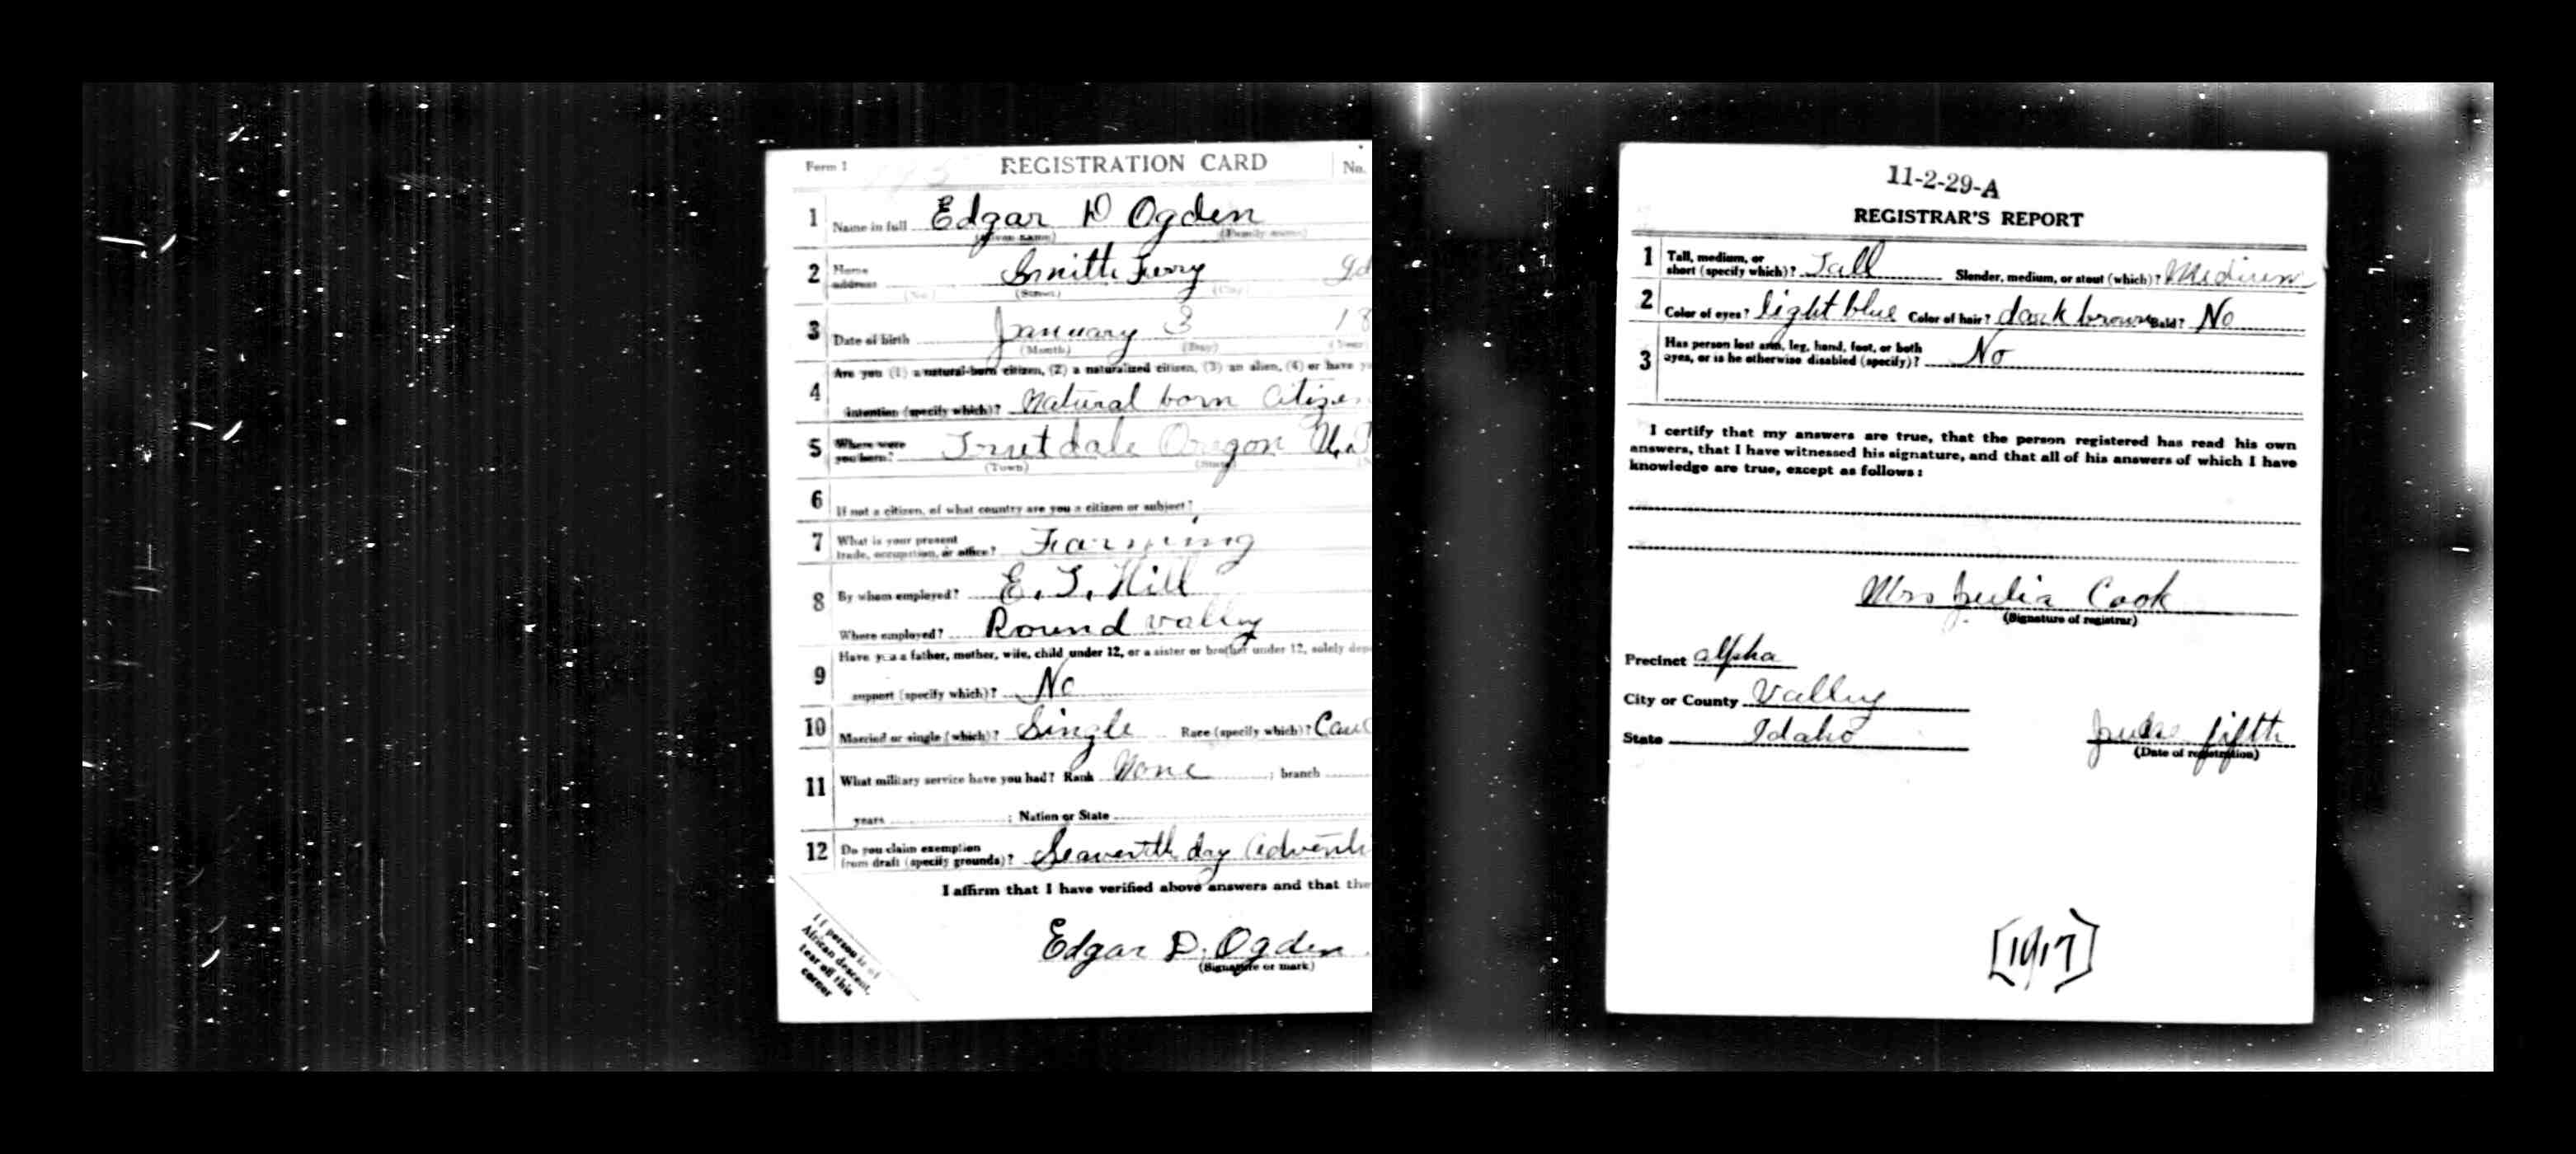 Form 1 REGISTRATION CARD No.
1 Name in full Edgar D Ogden
(Given name) (Family name)
2 Home address Smiths Ferry Id
(No.) (Street) (City)
3 Date of birth January 3 18
(Month) (Day) (Year
4 Are you (1) a natural-born citizen, (2) a naturalized citizen, (3) an alien, (4) or have yo
intention (specify which)? Natural born Citizen
5 Where were you born? Oregon
(Town) (State)
6 If not a citizen, of what country are you a citizen or subject?
7 What is your present trade, occupation, or office? Farming
8 By whom employed? E. T. Hill
Where employed? Round valley
9 Have you a father, mother, wife, child under 12, or a sister or brother under 12, solely dep
support (specify which)? No
10 Married or single (which)? Single Race (specify which)? Cauc
11 What military service have you had? Rank None ; branch
years ; Nation or State
12 Do you claim exemption from draft (specify grounds)? Seaventh day Adventi
I affirm that I have verified above answers and that the
Edgar D. Ogden
(Signature or mark)
If person is of
African descent,
tear off this
corner
11-2-29-A
REGISTRAR'S REPORT
1 Tall, medium, or short (specify which)? Tall Slender, medium, or stout (which)? Medium
2 Color of eyes? light blue Color of hair? dark brown Bald? No
3 Has person lost arm, leg, hand, foot, or both eyes, or is he otherwise disabled (specify)? No
I certify that my answers are true, that the person registered has read his own
answers, that I have witnessed his signature, and that all of his answers of which I have
knowledge are true, except as follows:
Mrs Julia Cook
(Signature of registrar)
Precinct alpha
City or County Valley
State Idaho June fifth
(Date of registration)
[1917]